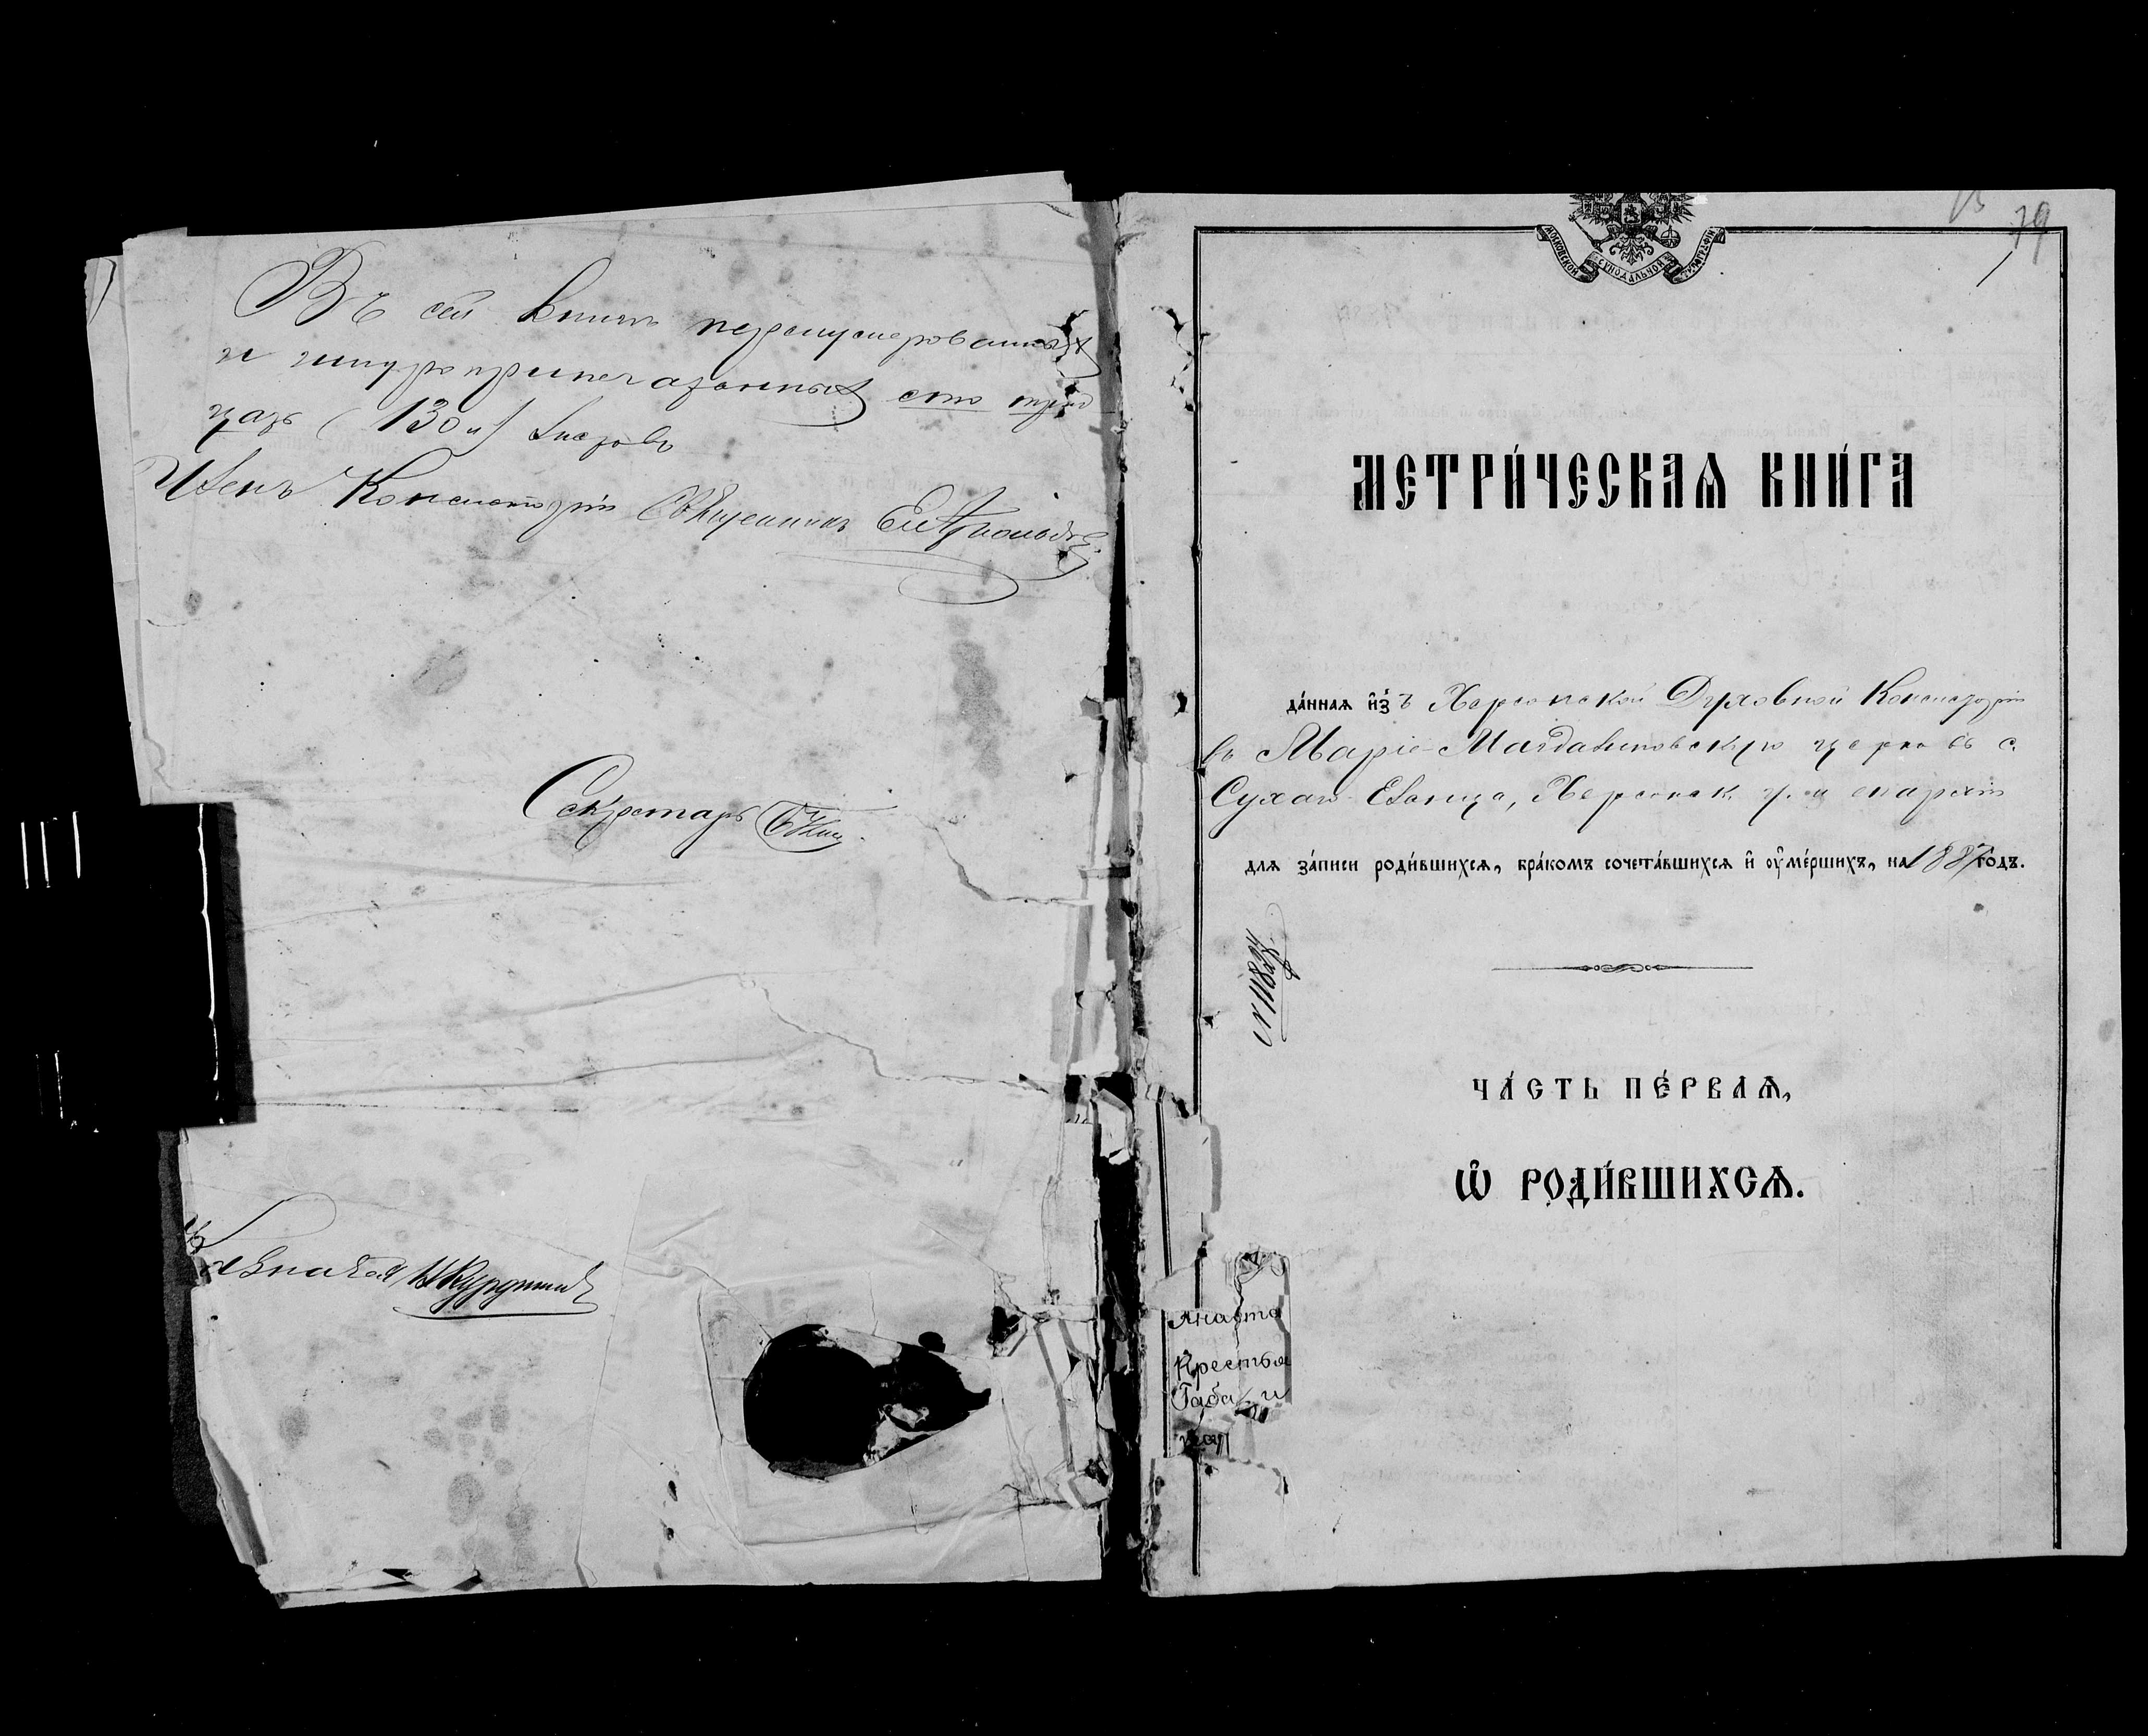 Въ сей книгѣ перенумерованныхъ
и шнуроприпечатанныхъ сто трид
цать (130 л) листовъ
Членъ Консисторіи Священникъ
Секретарь
Казначей
79
МОСКОВСКОЙ СѴНОДАЛЬНОЙ ТИПОГРАФІИ
МЕТРИ́ЧЕСКАѦ КНИ́ГА
да́ннаѧ и҆з̾ъ Херсонской Духовной Консисторіи
въ Маріе-Магдалиновскую церковь с.
Сухаго-Еланца, Херсонск. у. и епархіи
для за́писи роди́вшихсѧ, бра́комъ сочета́вшихсѧ и҆ ᲂу҆ме́ршихъ, на 1887 годъ.
ЧА́СТЬ ПЕ́РВАѦ,
Ѡ҆ РОДИ́ВШИХСѦ.
Анаста
Крестья